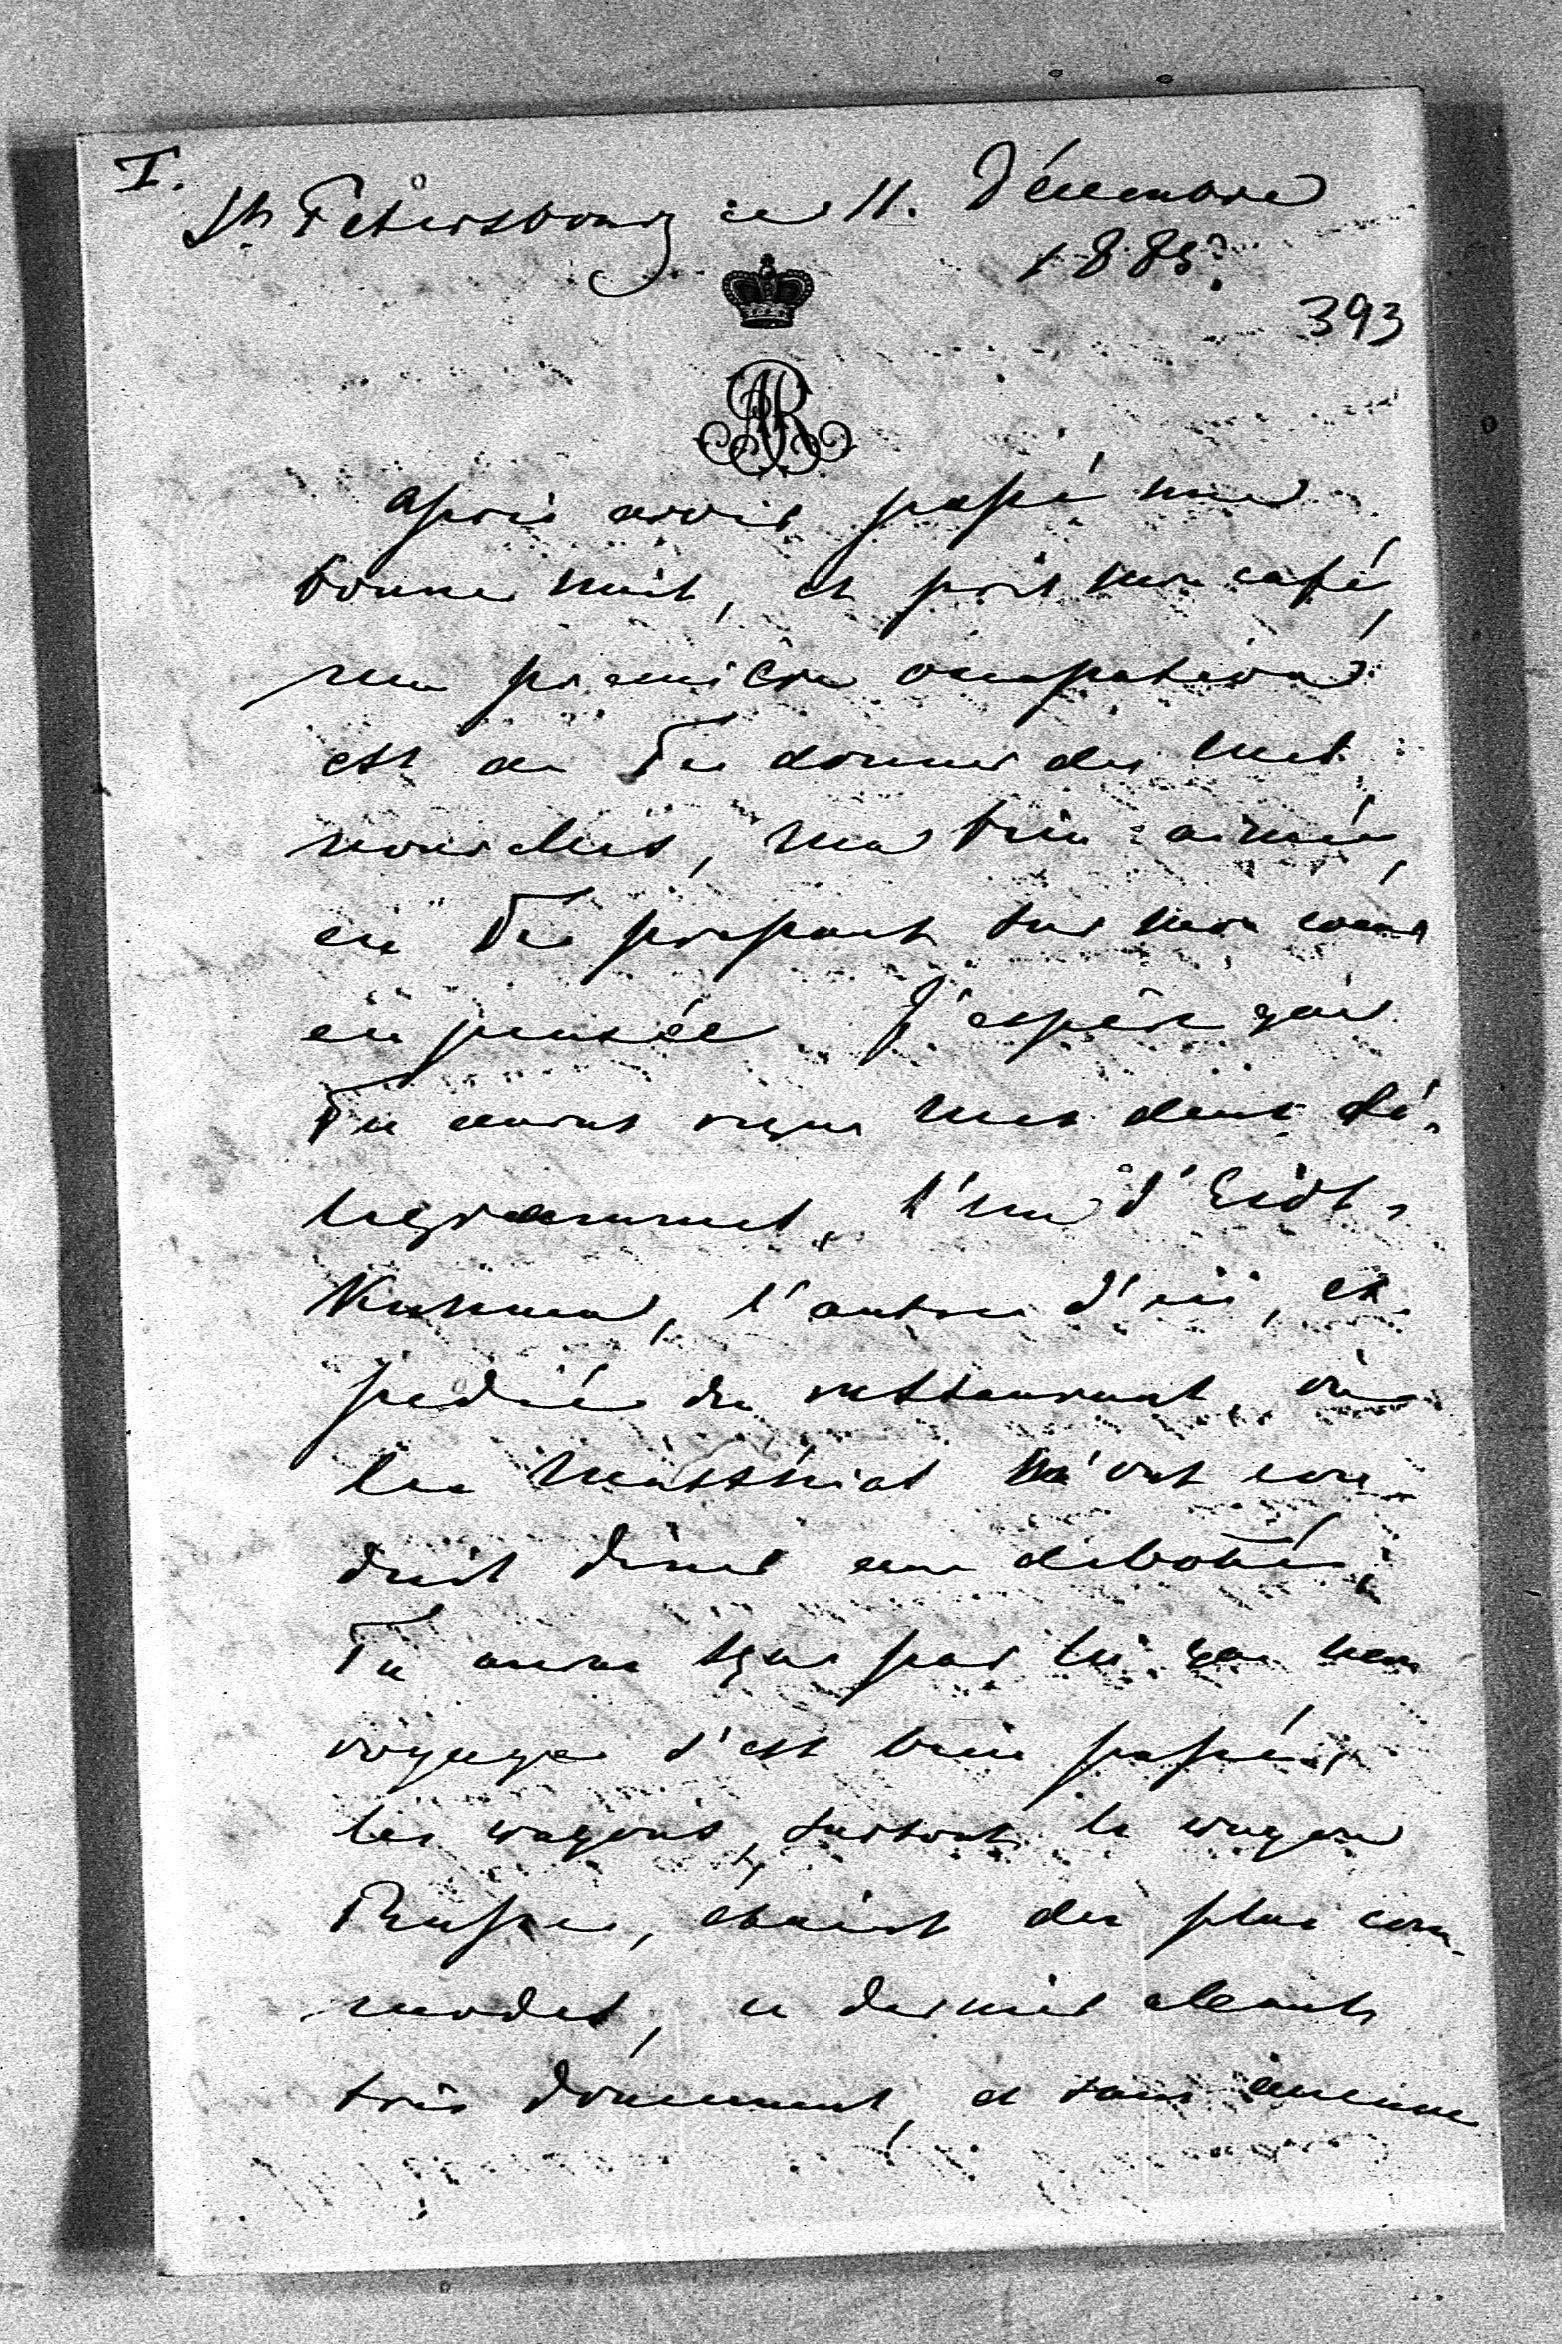 I.
St. Petersbourg ce 11. Décembre
1885.
393
AR
après avoir passé une
bonne nuit, et pris mon café,
ma première occupation
est de Te donner des mes
nouvelles, ma bien aimée,
en Te pressant sur mon cœur
en pensée J'espère que
Tu auras reçu mes deux té-
legrammes, l'un d'Eidt-
kuhnen, l'autre d'ici, ex
pedié du restaurant, où
les m'ont con
duit diner au débotté,
Tu auras sçu par lui que mon
voyage s'est bien passé,
les wagons, surtout le wagon
Russe, étaient des plus com-
modes, ce dernier allant
très doucement, et sans aucune